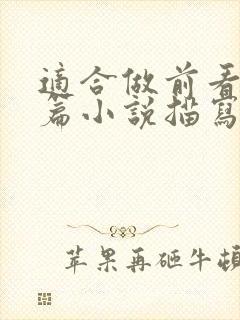 適合做前看
篇小說描寫
苹果再砸牛頓